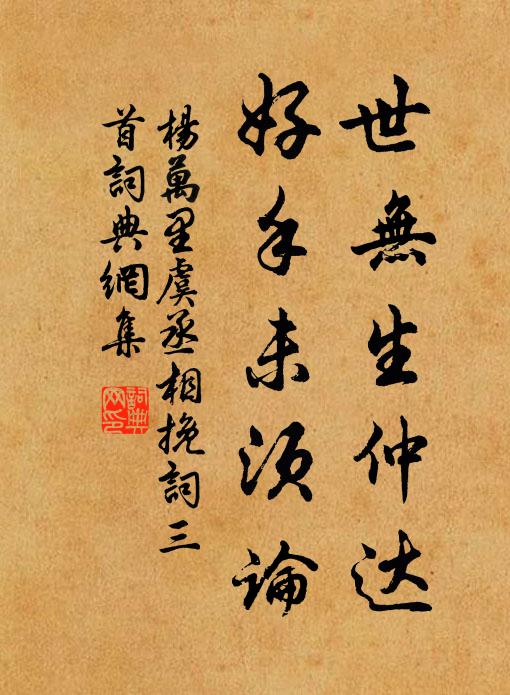 世無生仲达
好手未須論
楊萬里虞丞相挽詞三
首詞典網集
詞典网印